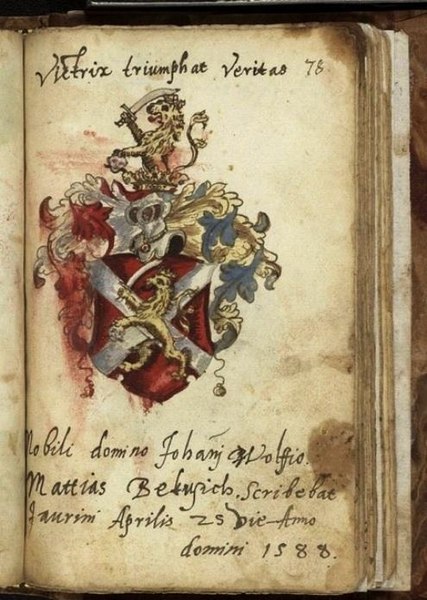 Victrix triumphat veritas 78
Nobili domino Johanj Wolffio.
Mattias Scribebat
Jaurini Aprilis 25 Die Anno
domini 1588.